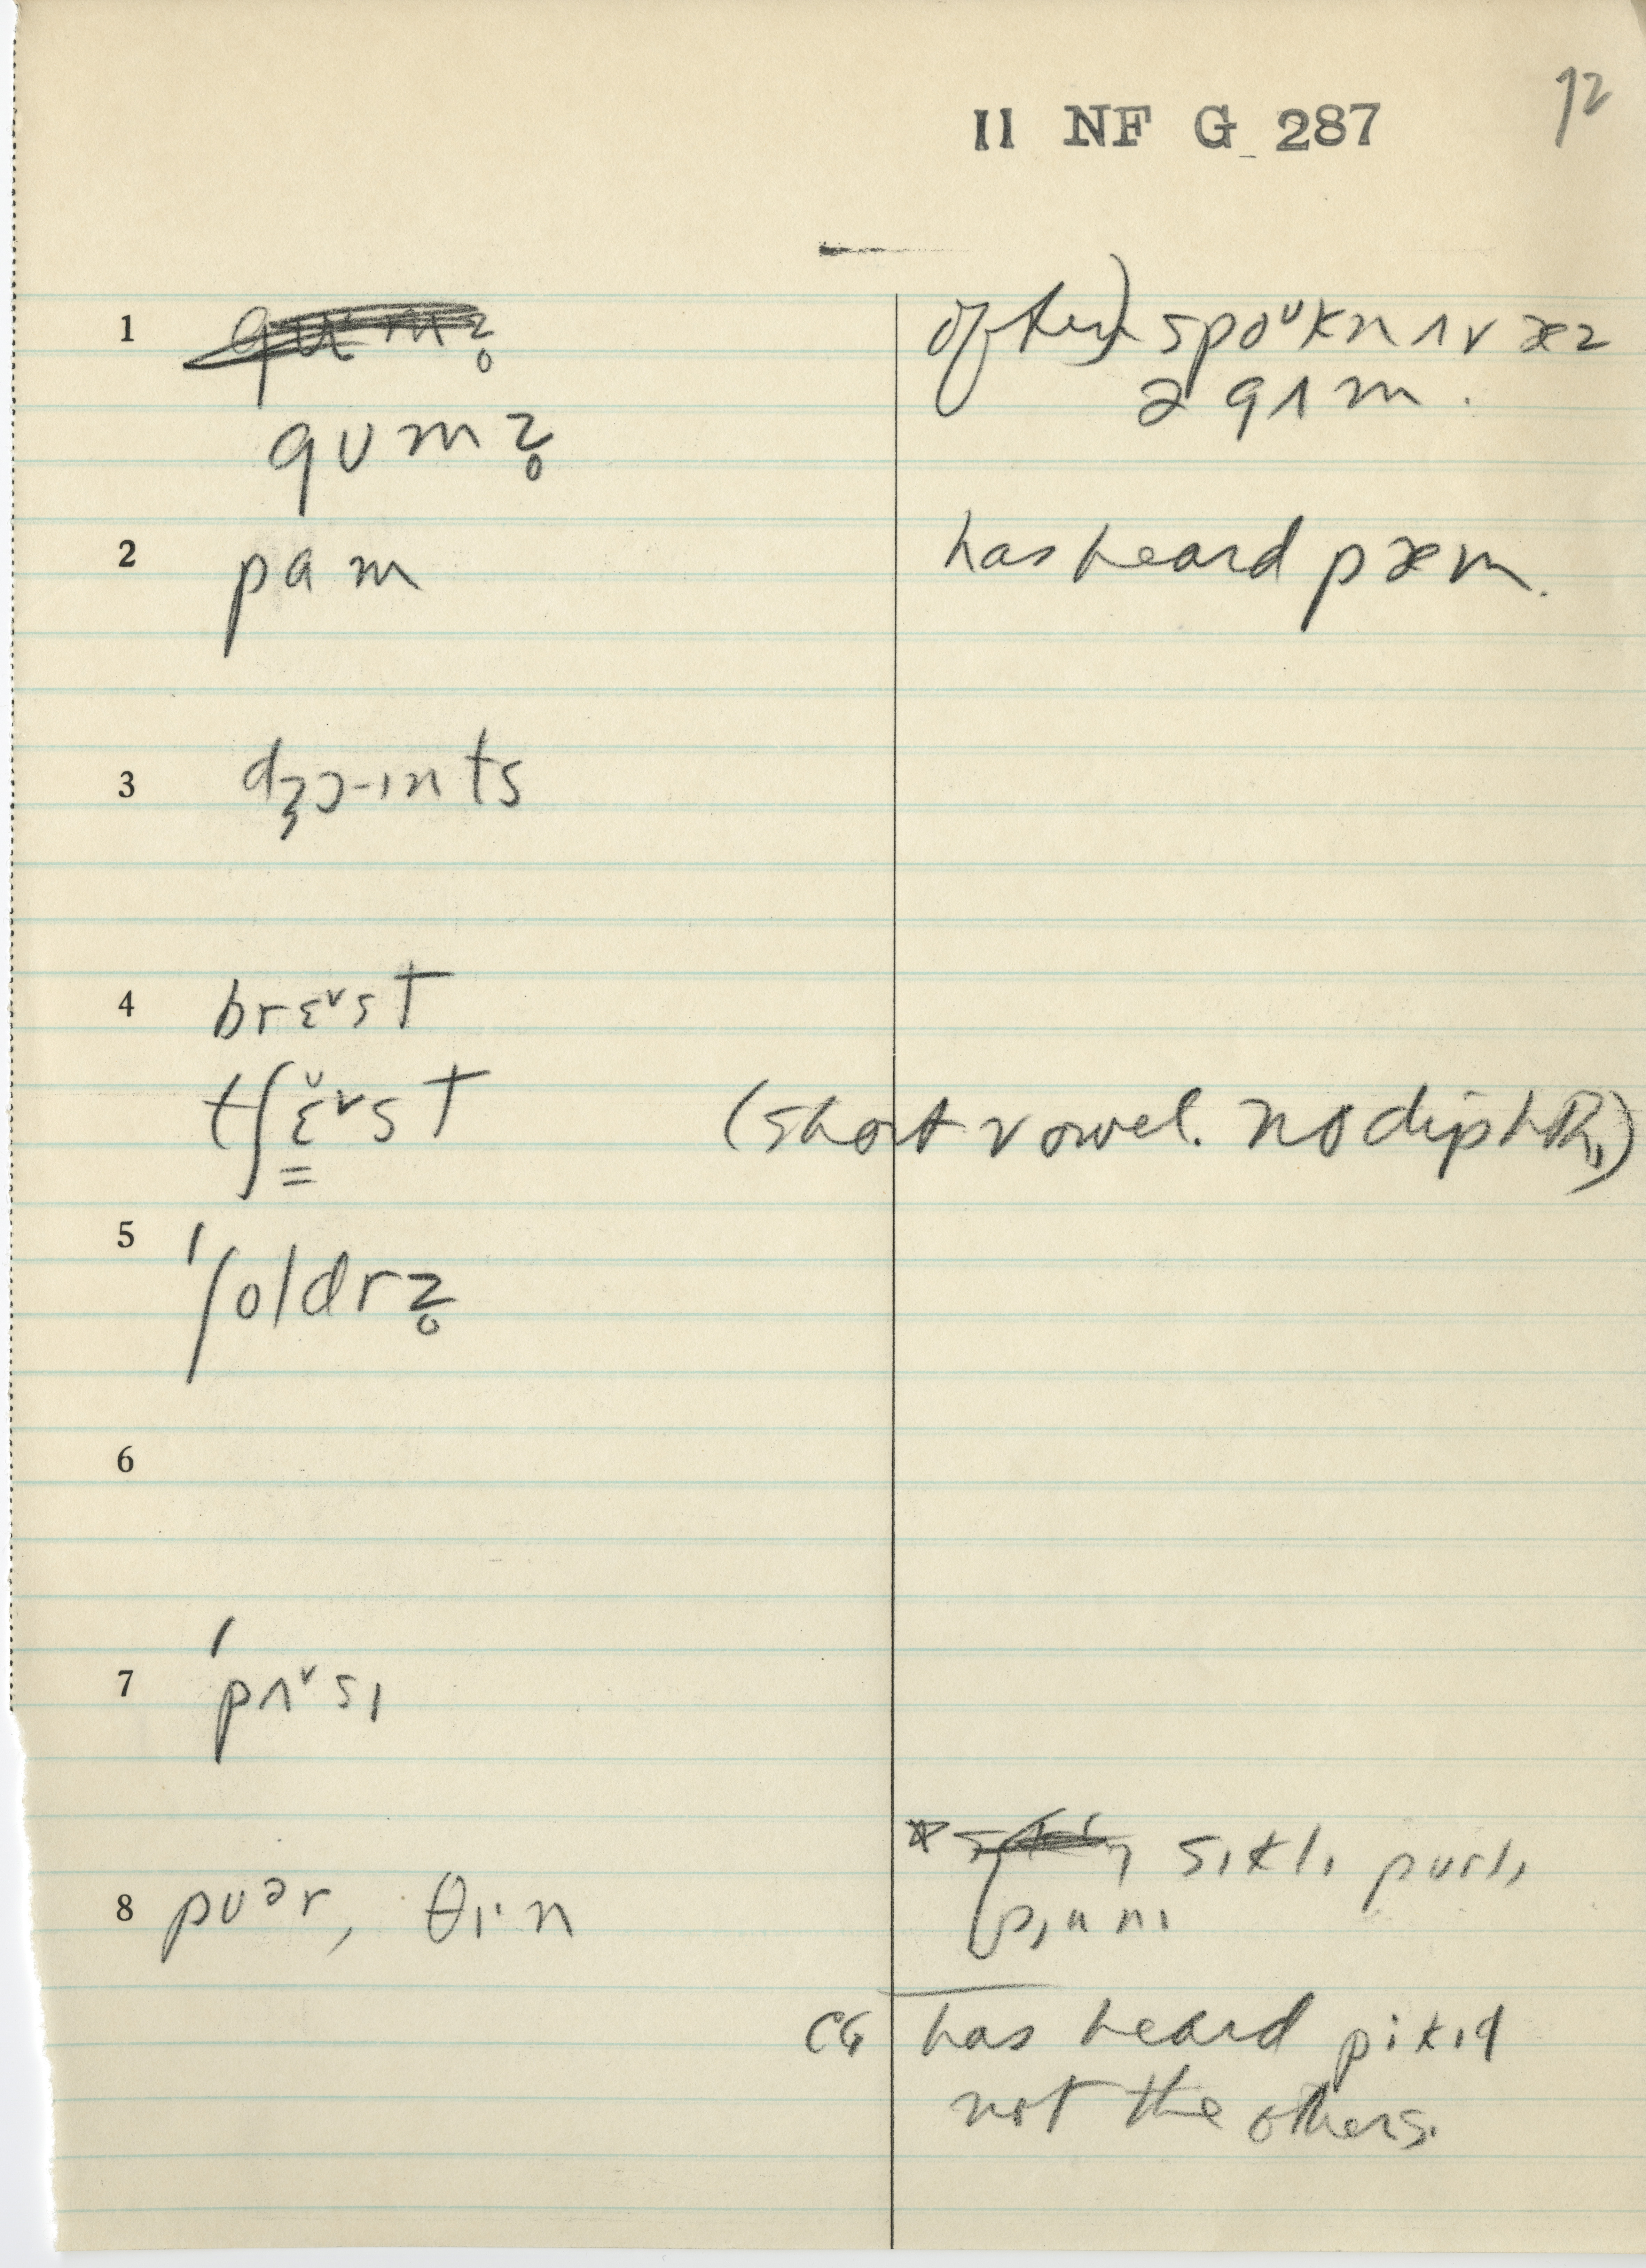 72
II NF G 287
1 gʊmz̥
often) spoᵘkn ʌv æz
gʊmz̥
ə gʌm.
2 pɑm has heard pæm.
3 dʒɔ-ɪnts
4 brɛᵛst
tʃɛ̆ᵛst (short vowel. no diphth.)
5 ˈʃoldrz̥
6
7 ˈpʌᵛsɪ
* sɪklɪ purlɪ
8 pʊᵊr, θɪ·n pɪnnɪ
CG has heard pikɪd
not the others.